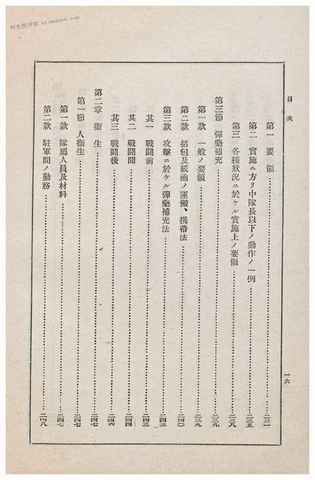 目次
第一 要領……二三一
第二 實施ニ方リ中隊長以下ノ動作ノ一例……二三五
第三 各種狀況ニ於ケル實施上ノ要領……二三八
第三節 彈藥補充……二三九
第一款 一般ノ要領……二三九
第二款 梱包及紙函ノ運搬、携帶法……二四〇
第三款 攻擊ニ於ケル彈藥補充法……二四三
其一 戰鬪前……二四三
其二 戰鬪間……二四四
其三 戰鬪後……二四六
第二章 衞生……二四七
第一節 人衞生……二四七
第一款 隊屬人員及材料……二四七
第二款 駐軍間ノ勤務……二四八
一六